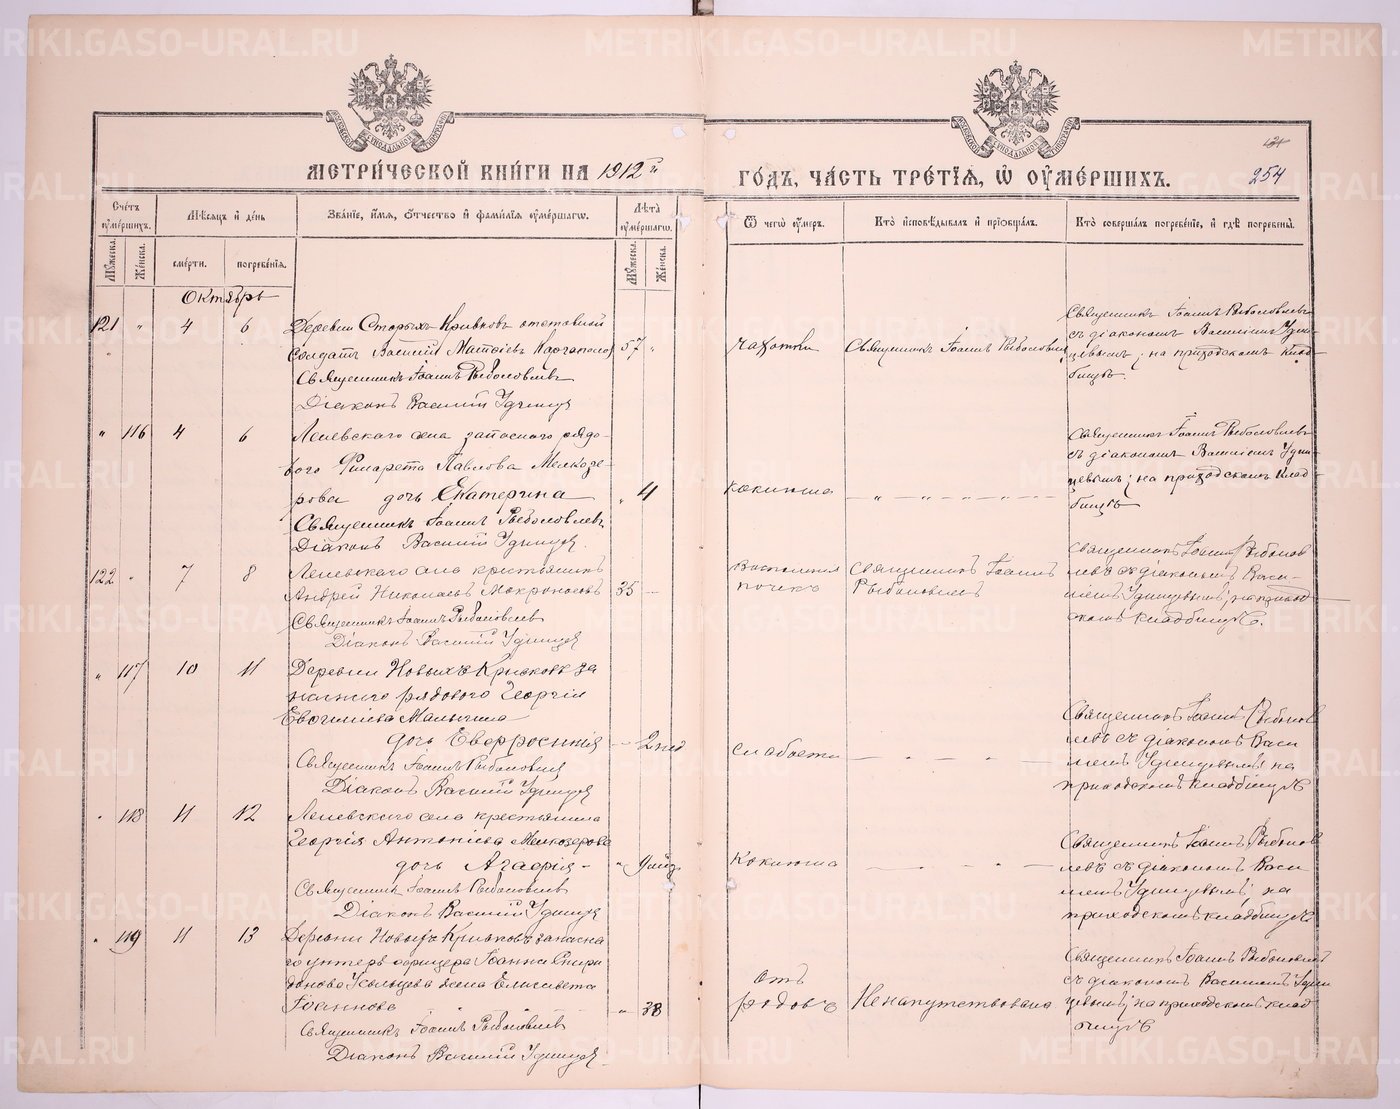 МЕТРИ́ЧЕСКОЙ КНИ́ГИ НА 1912й ГО́ДЪ, ЧА́СТЬ ТРЕ́ТІЯ, Ѡ ОУМЕ́РШИХЪ.
254
Счетъ оумершихъ.
Мужеска.
Женска.
Мѣсяцъ и день
смерти.
погребенія.
Званіе, имя, отчество и фамилія оумершаго.
Лѣта оумершаго.
Мужеска.
Женска.
Ѿ чегѡ оумеръ.
Кто исповѣдывалъ и пріобщалъ.
Кто совершалъ погребеніе, и гдѣ погребены.
Октябрь
121 " 4 6
Деревни Старыхъ Кривковъ отставной
солдатъ Василій Матѳіевъ Каргаполов 57 "
Священникъ Іоаннъ Рыболовлевъ
Діаконъ Василій Удинцев
чахотки
Священникъ Іоаннъ Рыболовлев
Священникъ Іоаннъ Рыболовлевъ
съ діакономъ Василіемъ Удин-
цевымъ; на приходскомъ клад-
бищѣ.
" 116 4 6
Лелевскаго села запаснаго рядо-
вого Филарета Павлова Мелкозе-
рова дочь Екатерина " 4
Священникъ Іоаннъ Рыболовлевъ
Діаконъ Василій Удинцев.
коклюша
— " — " — " — " —
Священникъ Іоаннъ Рыболовлевъ
съ діакономъ Василіемъ Удин-
цевымъ; на приходскомъ клад-
бищѣ
122 " 7 8
Лелевскаго села крестьянинъ
Андрей Николаевъ Мокроносовъ 35 —
Священникъ Іоаннъ Рыболовлев
Діаконъ Василій Удинцев
Воспаленія
почекъ
Священникъ Іоаннъ
Рыболовлевъ
Священникъ Іоаннъ Рыболов
левъ съ діакономъ Васи-
ліемъ Удинцевымъ; на приход
скомъ кладбищѣ.
" 117 10 11
Деревни Новыхъ Кривковъ за
паснаго рядового Георгія
Евгеніева Малыгина
дочь Евфросинія — 2 нед
Священникъ Іоаннъ Рыболовлев
Діаконъ Василій Удинцев
слабости
— " — " —
Священникъ Іоаннъ Рыболов
левъ съ діакономъ Васи
ліемъ Удинцевымъ на
приходскомъ кладбищѣ
" 118 11 12
Лелевскаго села крестьянина
Георгія Антоніева Мелкозерова
дочь Агафія — " 9 мѣс
Священникъ Іоаннъ Рыболовлев
Діаконъ Василій Удинцев
Коклюша
Священникъ Іоаннъ Рыболов
левъ съ діакономъ Васи
ліемъ Удинцевымъ; на
приходскомъ кладбищѣ
" 119 11 13
Деревни Новыхъ Кривковъ запасна
го унтеръ офицера Іоанна Спири
донова Усольцева жена Елисавета
Іоаннова — 38
Священникъ Іоаннъ Рыболовлев
Діаконъ Василій Удинцев
Отъ
родовъ
Ненапутствована
Священникъ Іоаннъ Рыболовлев
съ діакономъ Василіемъ Удин
цевымъ; на приходскомъ клад
бищѣ
METRIKI.GASO-URAL.RU